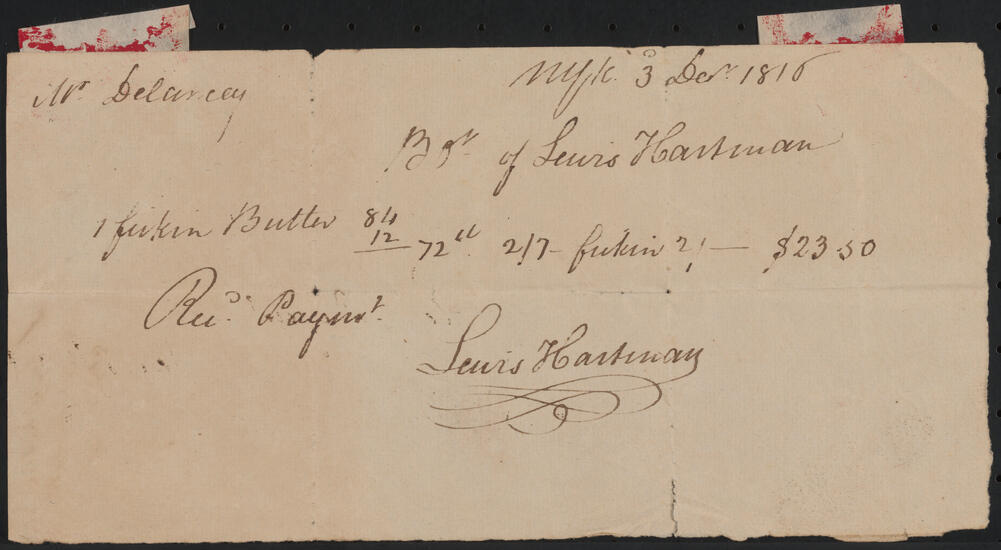 NYk. 3 Der. 1816
Mr. Delancey
Bot. of Lewis Hartman
1 firkin Butter 84
12 72 lb 2/7 - firkin 2/ — $23.50
Recd. Paymt.
Lewis Hartman